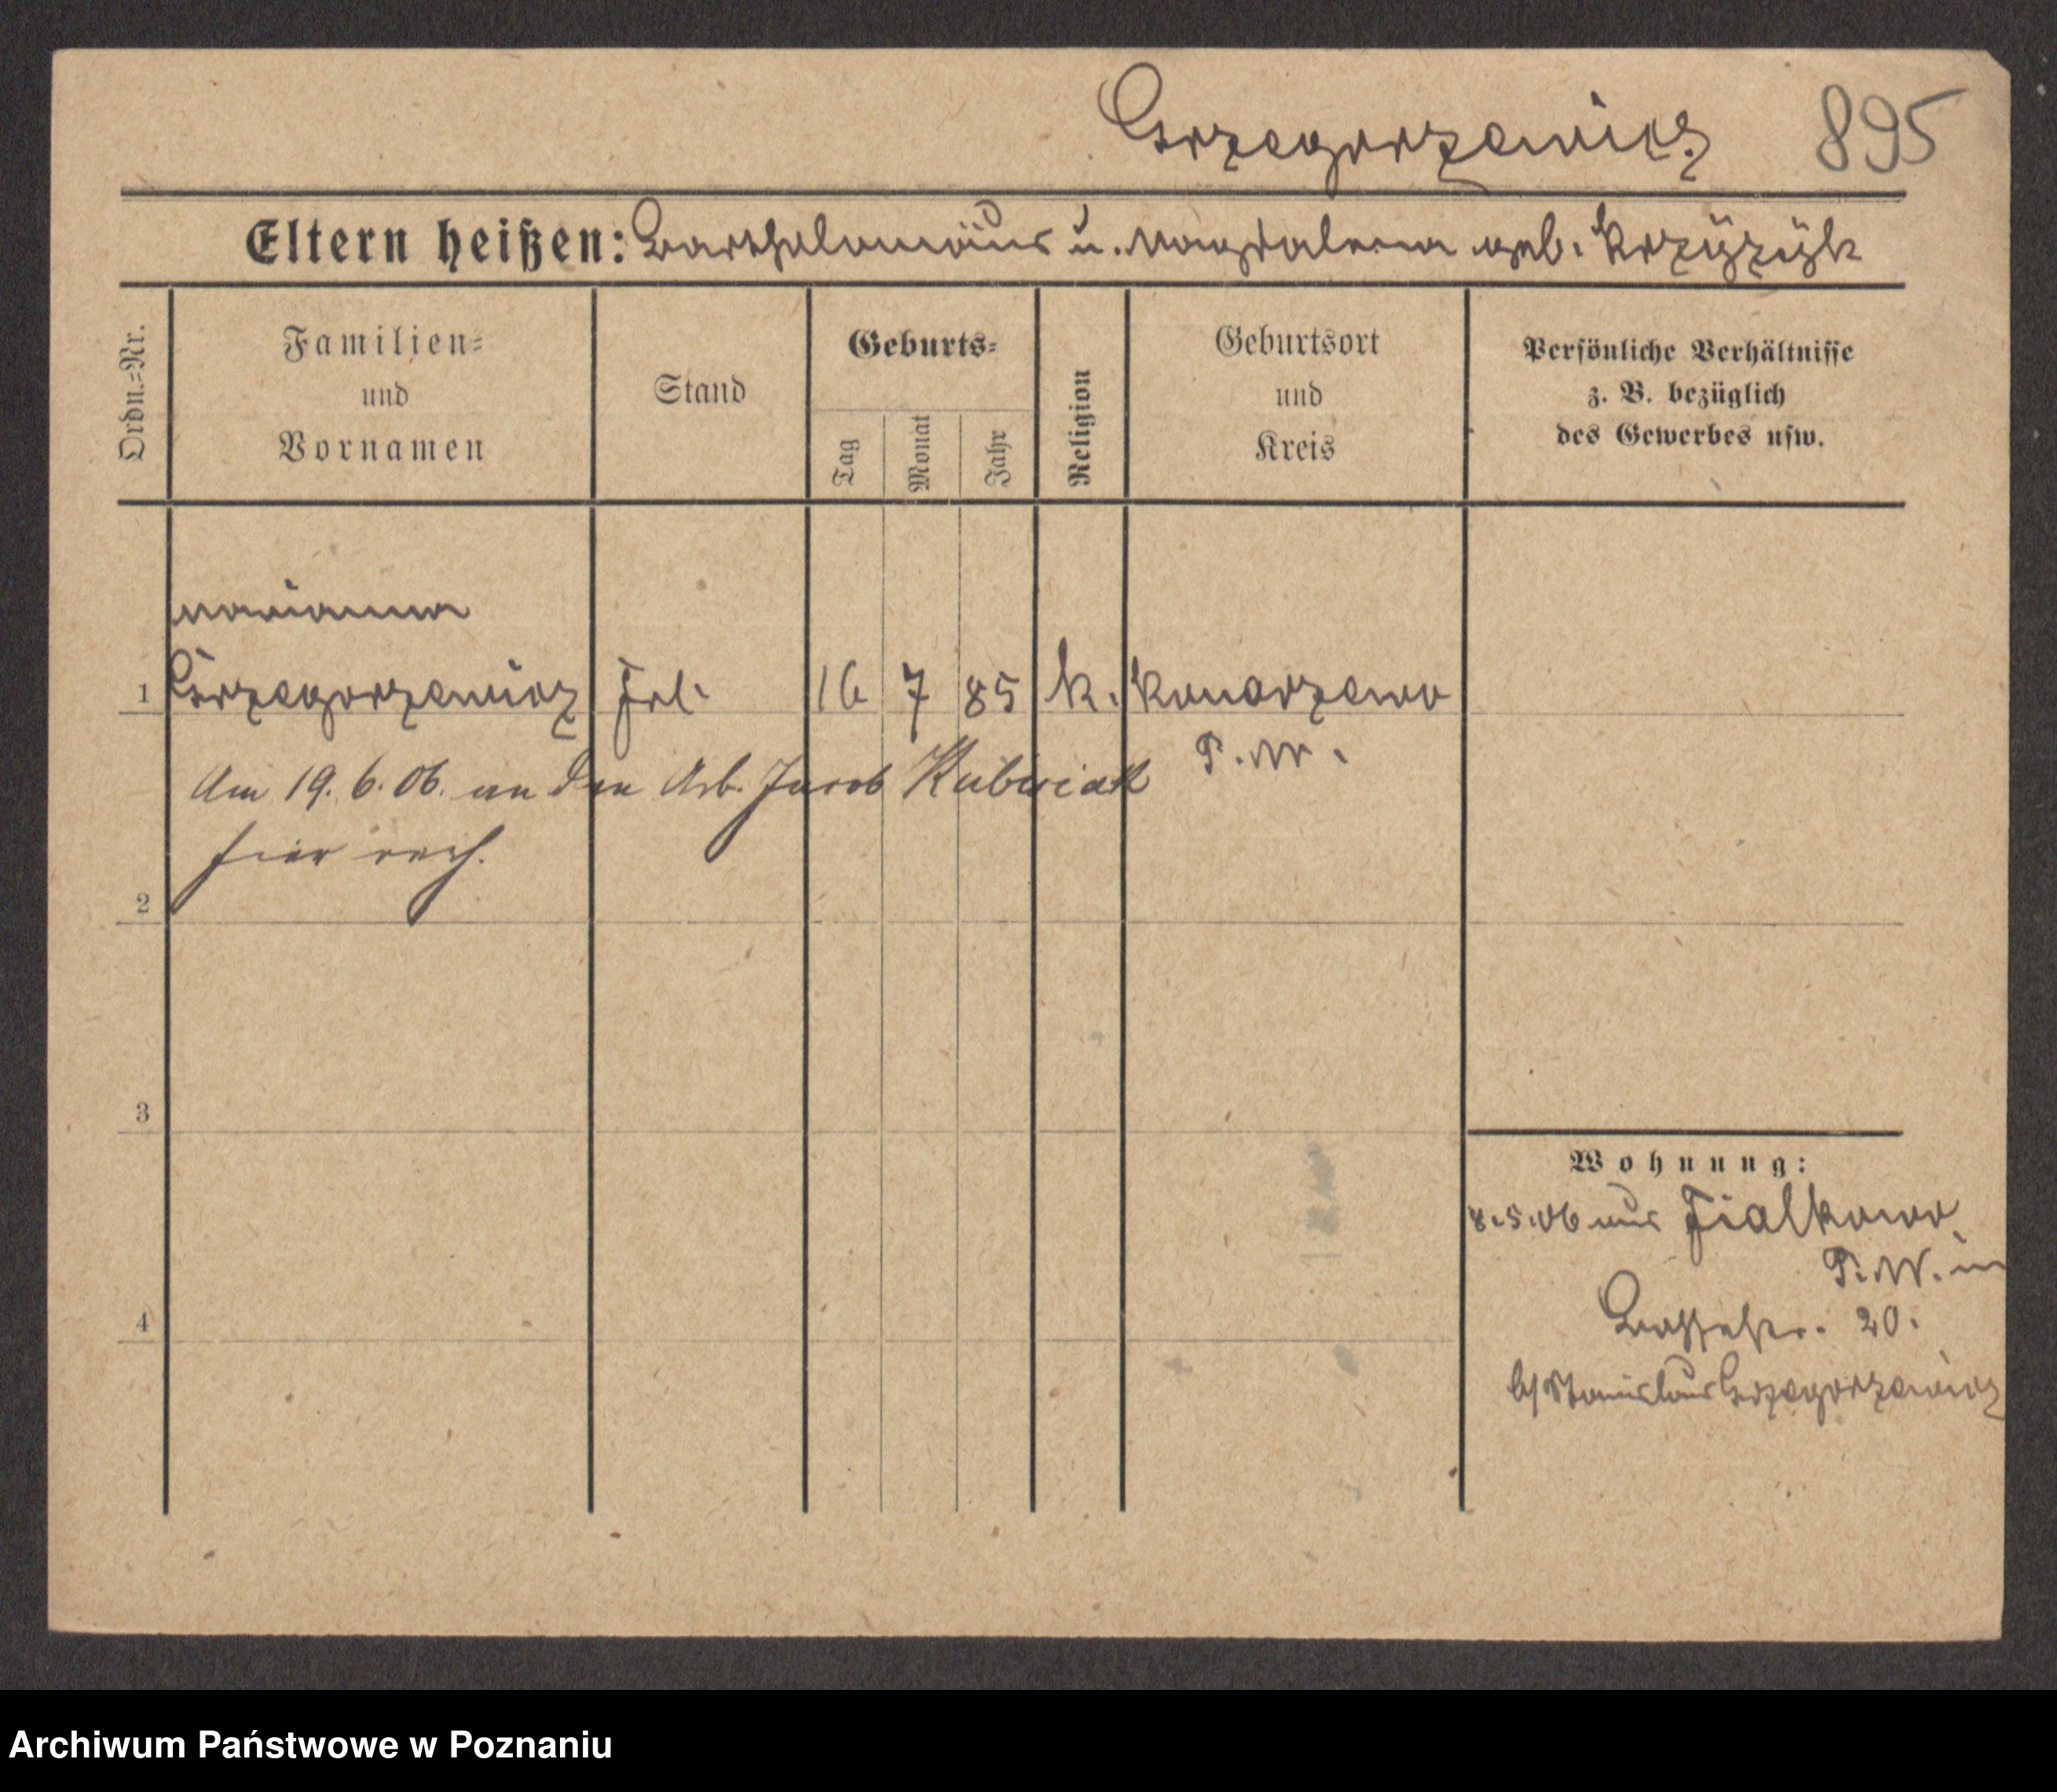 Grzegorzewicz 895
Eltern heißen: Bartholomäus u. Magdalena geb. Krzyżyk
Ordn.=Nr.
Familien=
und
Vornamen
Stand
Geburts=
Tag
Monat
Jahr
Religion
Geburtsort
und
Kreis
Persönliche Verhältnisse
z. B. bezüglich
des Gewerbes usw.
Marianna
1 Grzegorzewicz Frl. 16 7 85 k. Konarzewo
P. W.
Am 19. 6. 06. an den Arb. Jacob Kubiak
hier verh.
2
3
Wohnung:
8.5.06 aus Fialkowo
P. W. in
20.
4
b/ Stanislaus Grzegorzewicz
Archiwum Państwowe w Poznaniu